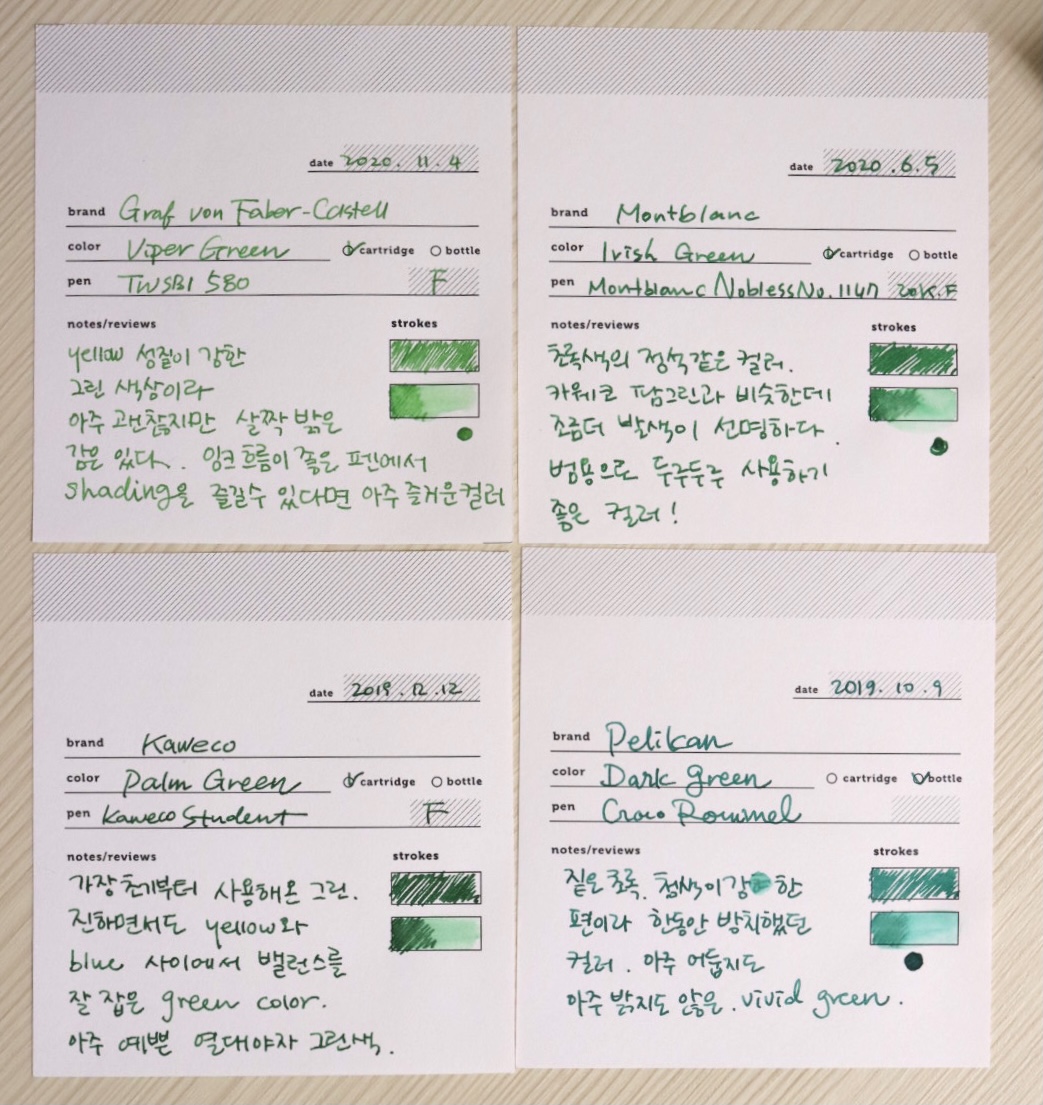 date 2020.11.4
brand Graf von Faber-Castell
color Viper Green cartridge bottle
pen TWSBI 580 F
notes/reviews strokes
yellow 성질이 강한
그린 색상이라
아주 괜찮지만 살짝 밝은
감은 있다. 잉크흐름이 좋은 펜에서
shading을 즐길수 있다면 아주 즐거운 컬러
date 2020.6.5
brand Montblanc
color Irish Green cartridge bottle
pen Montblanc Nobless No.1147 F
notes/reviews strokes
초록색의 정석같은 컬러.
카웨코 팜그린과 비슷한데
조금더 발색이 선명하다.
범용으로 두루두루 사용하기
좋은 컬러!
date 2019.12.12
brand Kaweco
color Palm Green cartridge bottle
pen Kaweco Student F
notes/reviews strokes
가장 초기부터 사용해온 그린.
진하면서도 yellow와
blue 사이에서 밸런스를
잘 잡은 green color.
아주 예쁜 열대야자 그린색.
date 2019.10.9
brand Pelikan
color Dark green cartridge bottle
pen Croco Rommel
notes/reviews strokes
짙은 초록. 청색이 강한
편이라 한동안 방치했던
컬러. 아주 어둡지도
아주 밝지도 않은. vivid green.